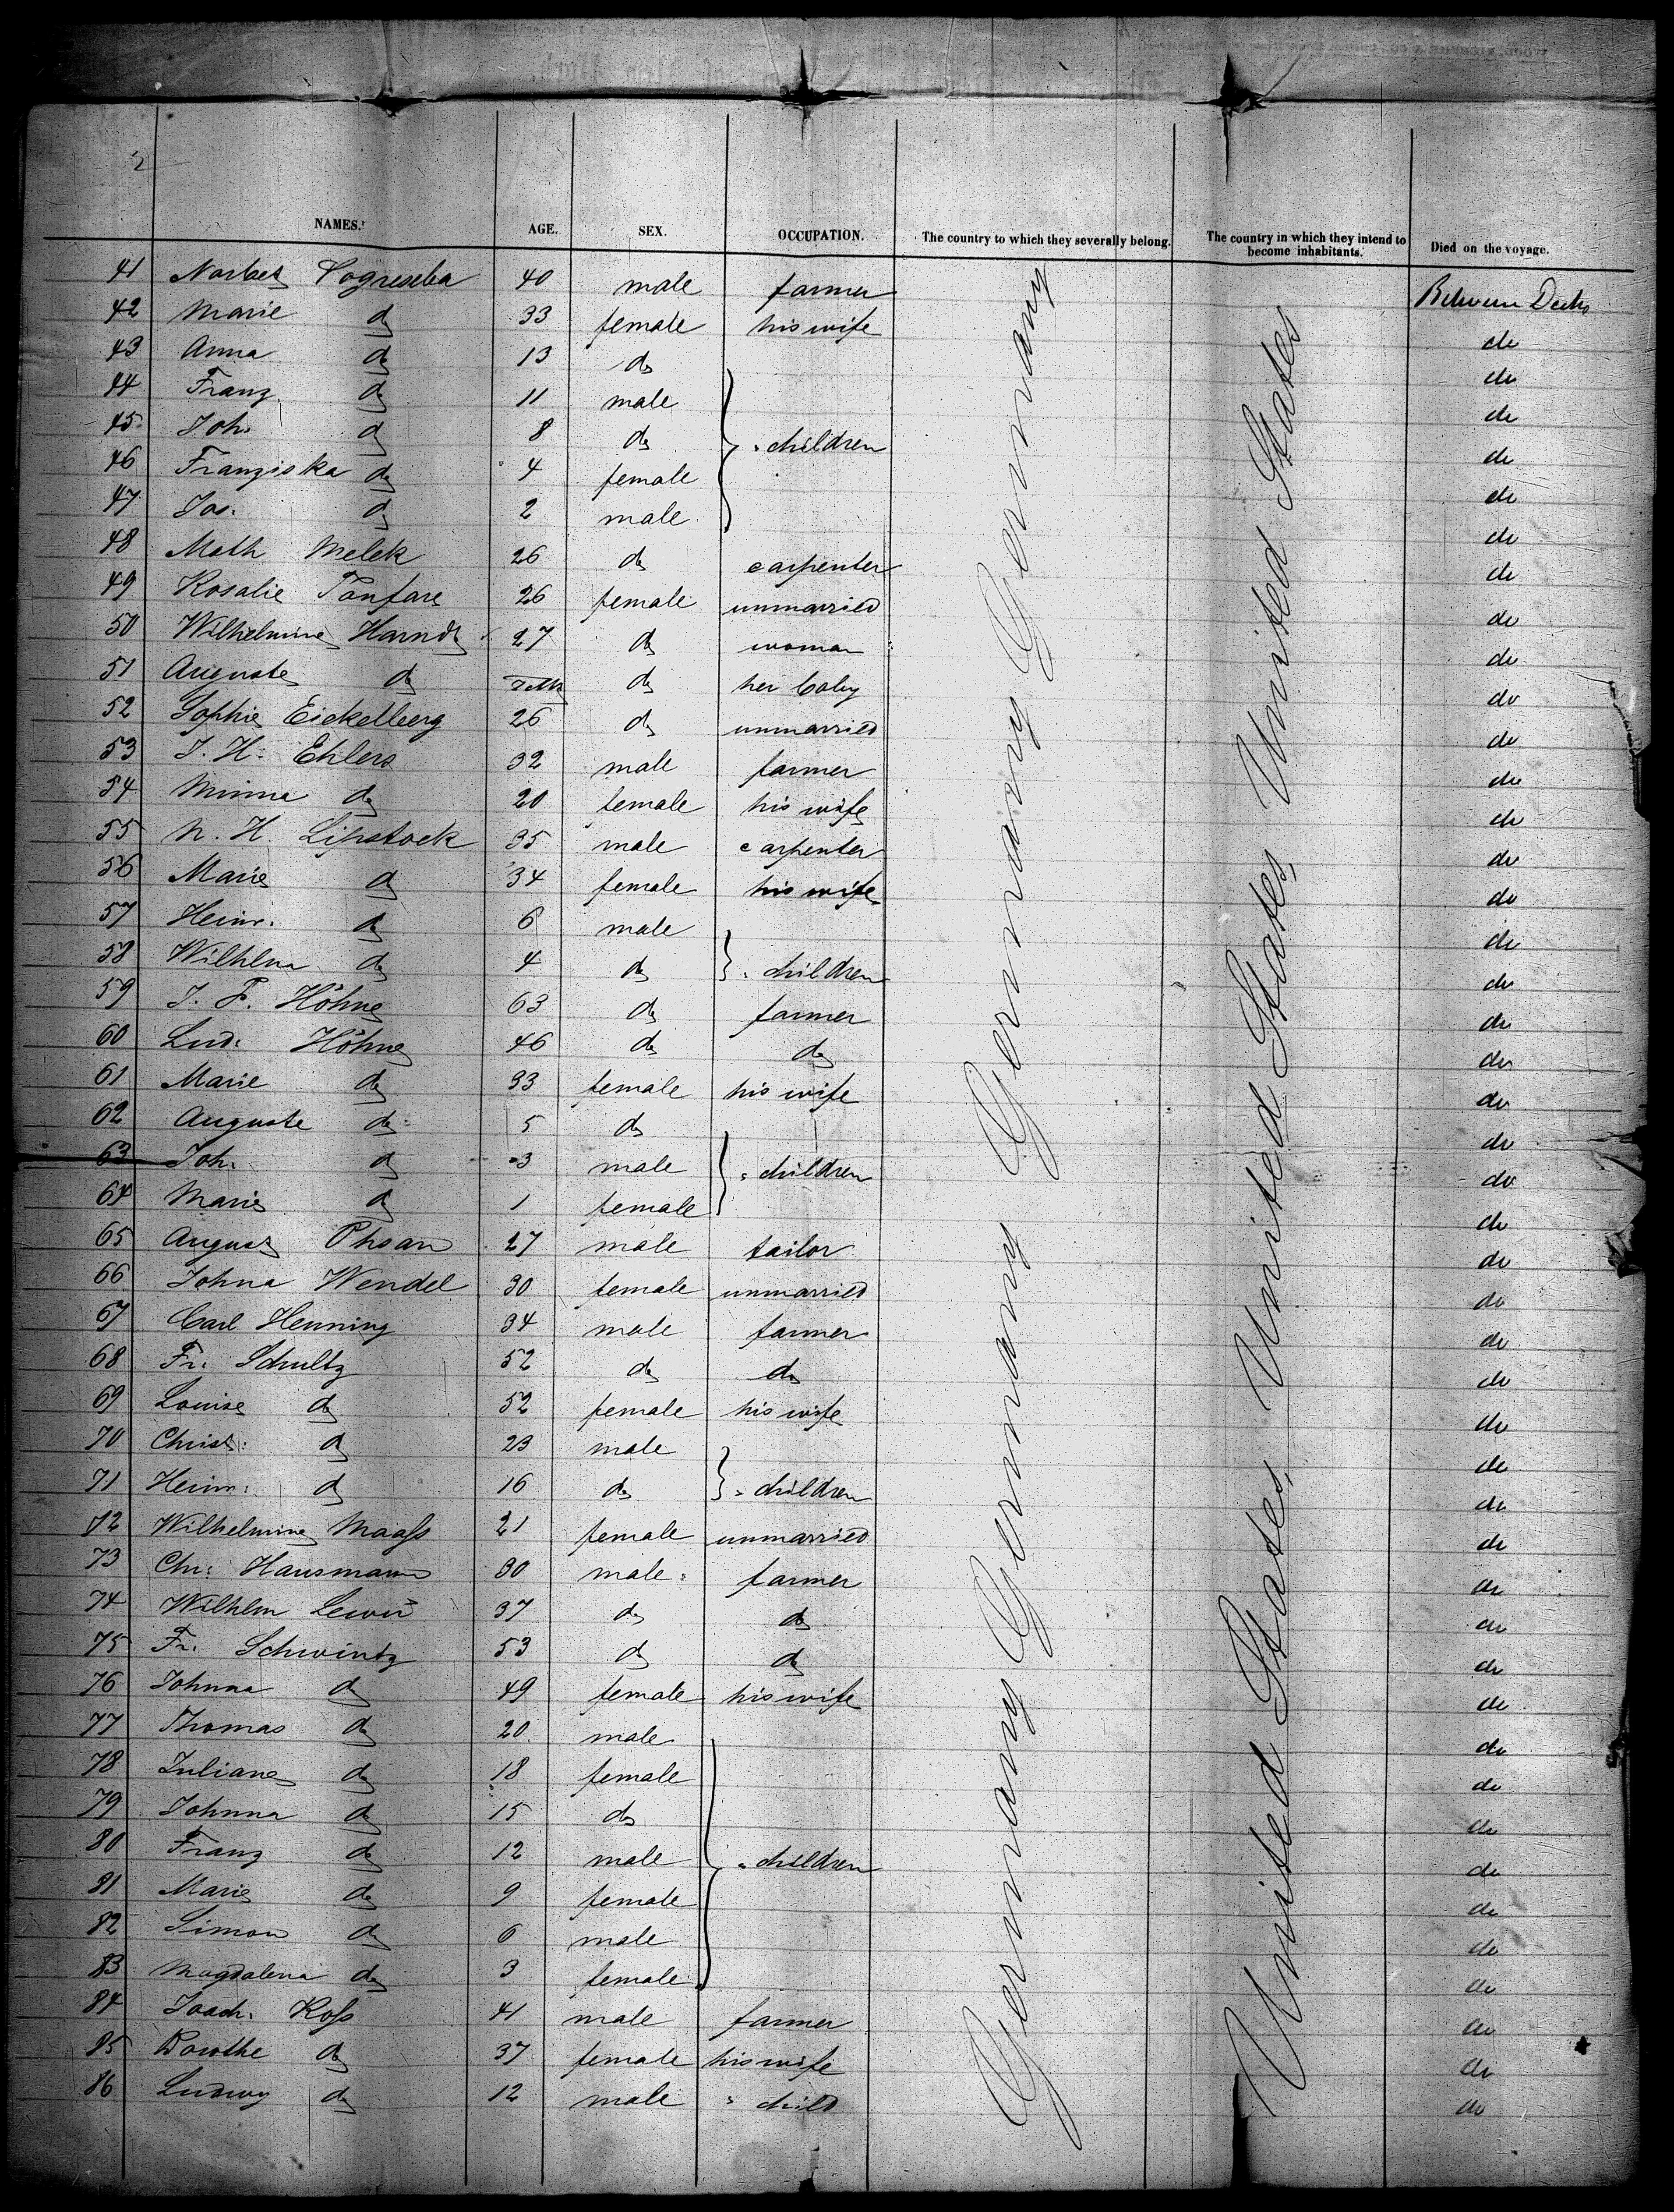 NAMES. AGE. SEX. OCCUPATION. The country to which they severally belong. The country in which they intend to become inhabitants. Died on the voyage.
41 40 male farmer Between Decks
42 Marie do 33 female his wife do
43 Anna do 13 do do
44 Franz do 11 male do
45 Joh. do 8 do children do
46 Franziska do 4 female do
47 Jos. do 2 male do
48 Math Melek 26 do carpenter do
49 Rosalie Fanfare 26 female unmarried do
50 Wilhelmine Harndt 27 do woman do
51 Auguste do do her baby do
52 Sophie Eickelberg 26 do unmarried do
53 J. H. Ehlers 32 male farmer do
54 Minna do 20 female his wife do
55 N. H. Lipstock 35 male carpenter do
56 Marie do 34 female his wife do
57 Heinr. do 6 male do
58 Wilhlm do 4 do children do
59 J. F. Höhne 63 do farmer do
60 Lud. Höhne 46 do do do
61 Marie do 33 female his wife do
62 Auguste do 5 do do
63 Joh. do 3 male children do
64 Marie do 1 female do
65 August 27 male tailor do
66 Johna Wendel 30 female unmarried do
67 Carl Henning 34 male farmer do
68 Fr. Schultz 52 do do do
69 Louise do 52 female his wife do
70 Christ. do 23 male do
71 Heinr. do 16 do children do
72 Wilhelmine Maass 21 female unmarried do
73 Chr. Hausmann 30 male farmer do
74 Wilhlm 37 do do do
75 Fr. Schwintz 53 do do do
76 Johnna do 49 female his wife do
77 Thomas do 20 male do
78 Juliane do 18 female do
79 Johnna do 15 do do
80 Franz do 12 male children do
81 Marie do 9 female do
82 Simon do 6 male do
83 Magdalena do 3 female do
84 Joach. Koss 41 male farmer do
85 Dorothe do 37 female his wife do
86 Ludwig do 12 male child do
Germany Germany Germany Germany
United States United States United States